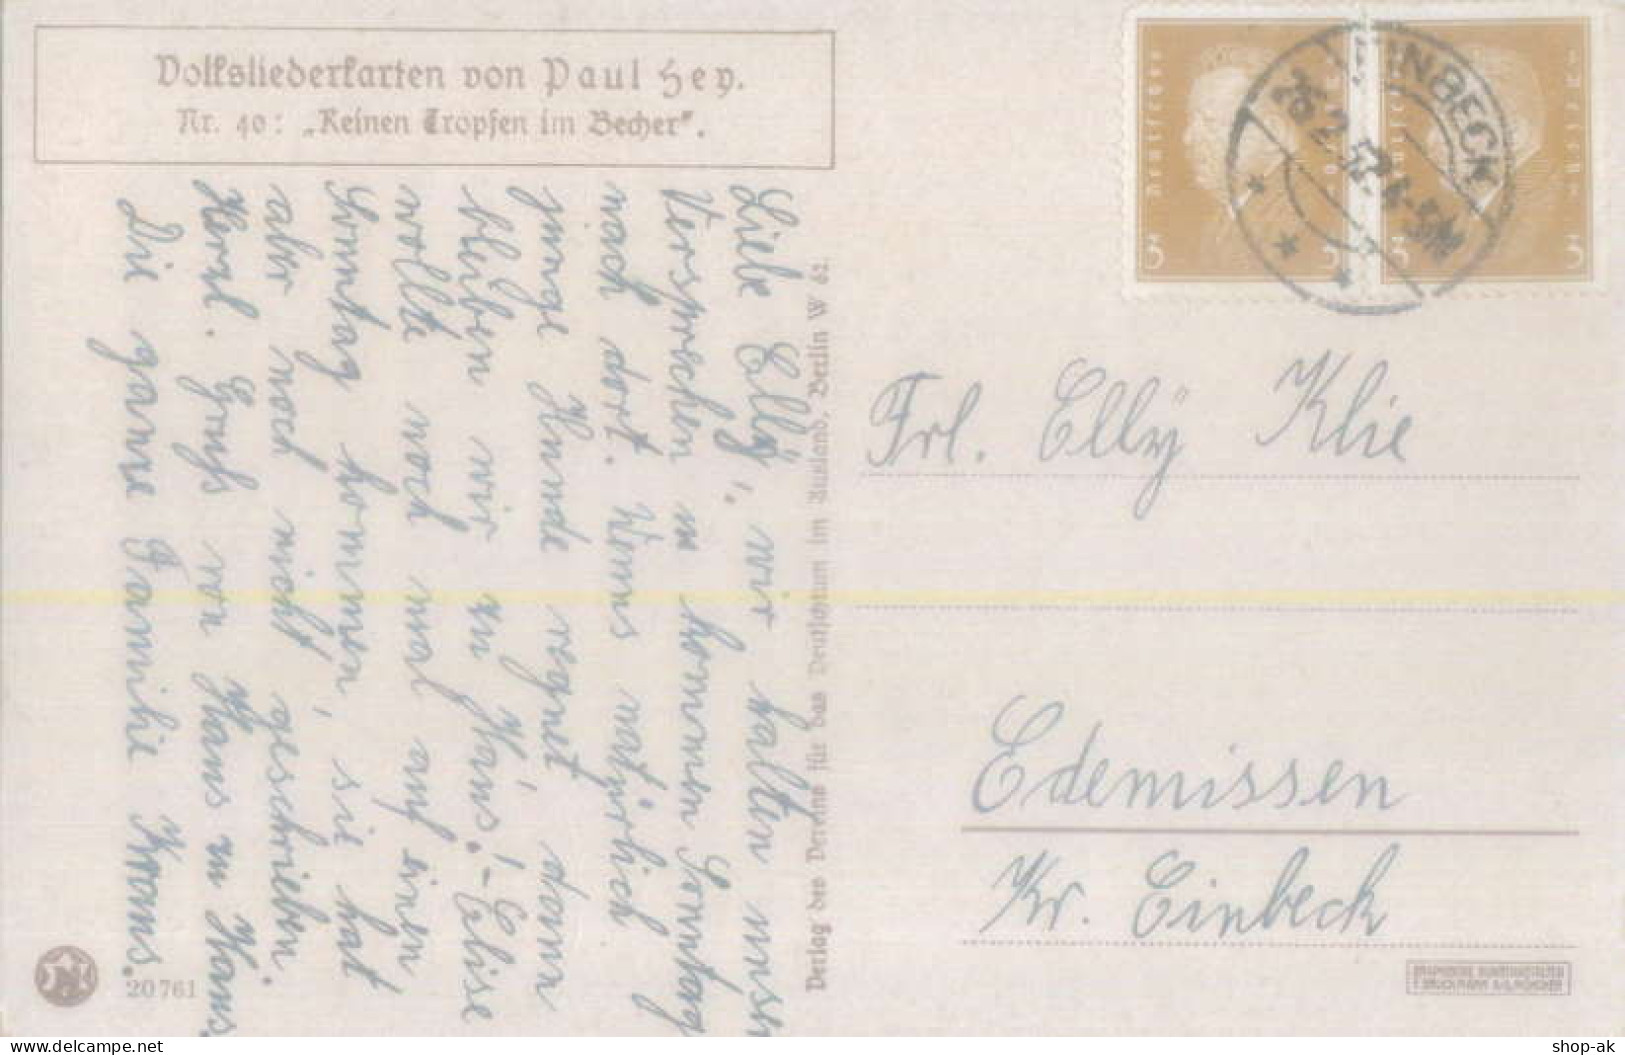 Volksliederkarten von Paul Hey.
Nr. 40: „Keinen Tropfen im Becher".
Liebe Elly, wir halten unser
Versprechen u. kommen Sonntag
nach dort. Wenns natürlich
junge Hunde regnet dann
bleiben wir zu Haus! - Elise
wollte noch mal auf einen
Sonntag kommen, sie hat
aber noch nicht geschrieben.
Herzl. Gruß von Haus zu Haus
Die ganze Familie Kraams.
20761
Verlag des Vereins für das Deutschtum im Ausland, Berlin W 62.
Deutsches Reich
3 3
Deutsches Reich
3 3
EINBECK
Frl. Elly Klie
Edemissen
Kr. Einbeck
GRAPHISCHE KUNSTANSTALTEN
BRUCKMANN A/G, MÜNCHEN
https://www.delcampe.net
shop-ak